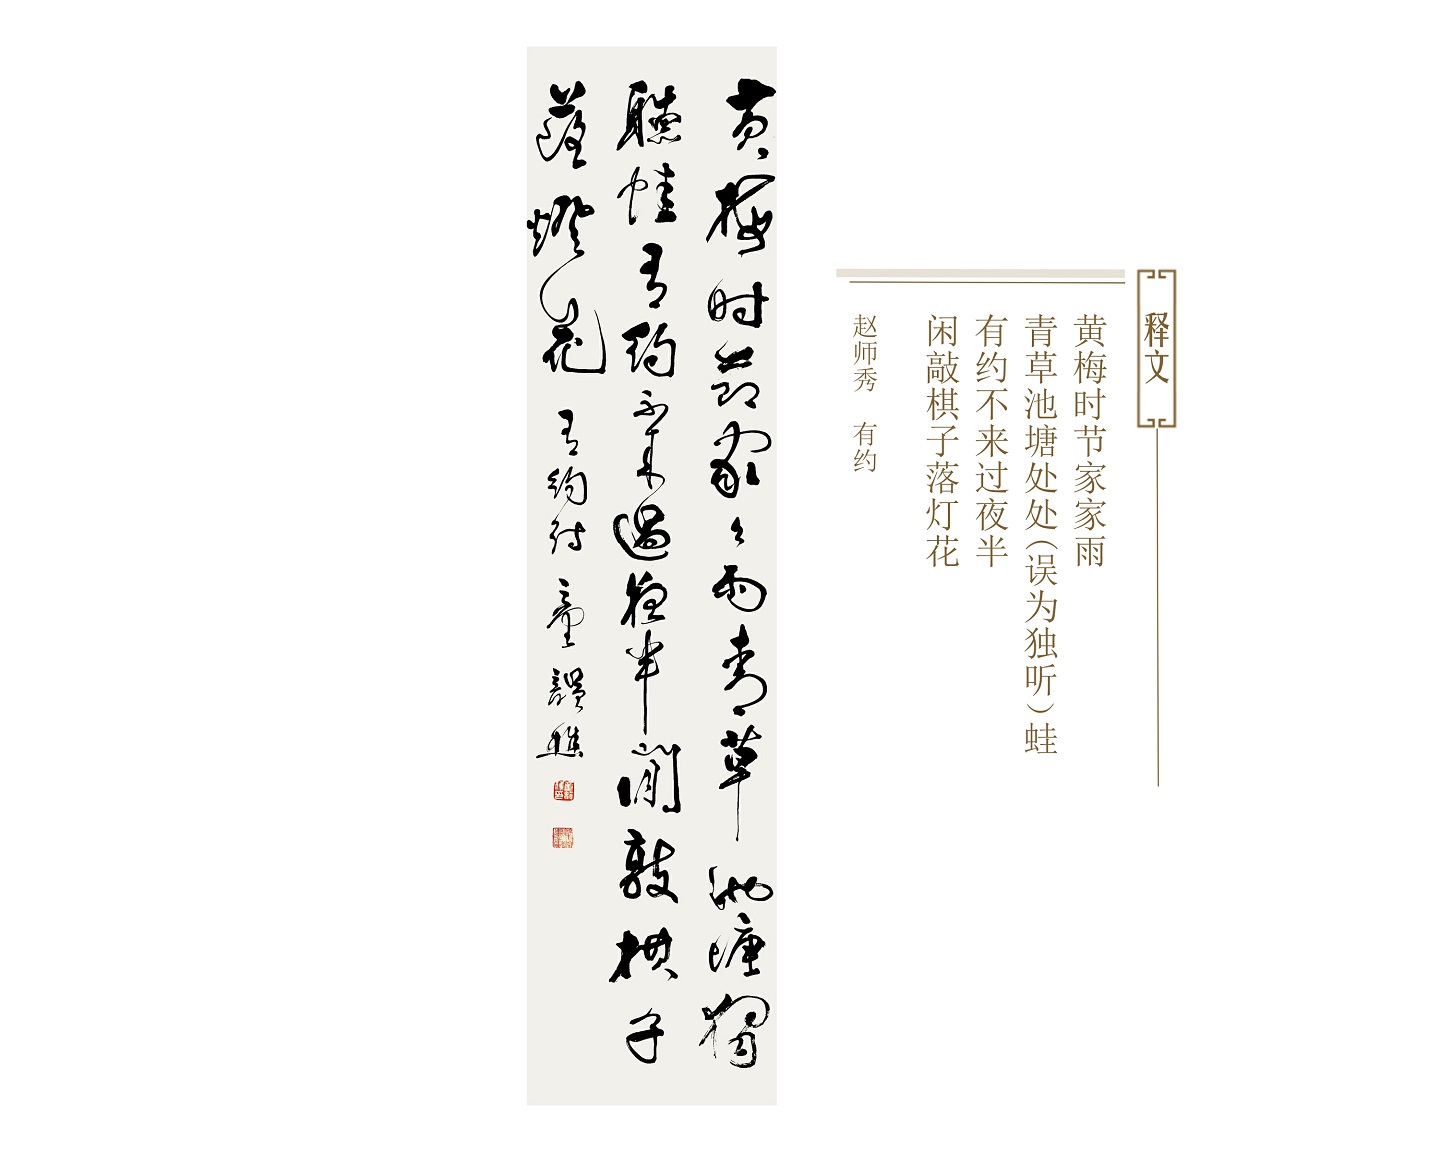 释文
黄梅时节家家雨
青草池塘处处(误为独听)蛙
有约不来过夜半
闲敲棋子落灯花
赵师秀 有约
黄梅时节家々雨青草池塘獨
聽蛙有约不来過夜半閒敲棋子
落燈花 有约诗